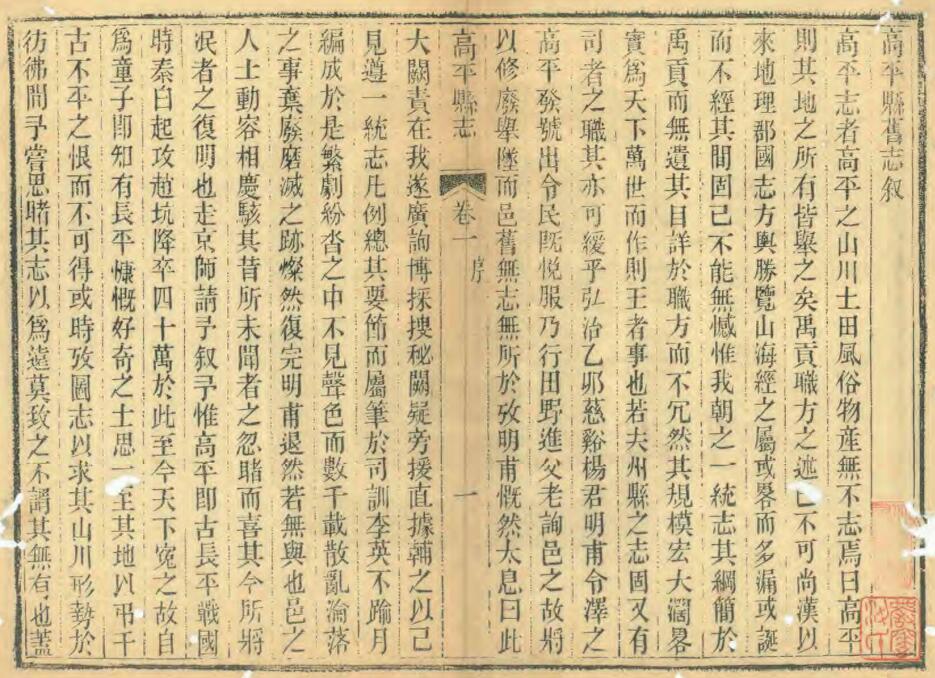 高平縣舊志叙
高平志者高平之山川土田風俗物產無不志焉曰高平
則其地之所有皆舉之矣禹貢職方之述已不可尚漢以
來地理郡國志方輿勝覽山海經之屬或畧而多漏或誕
而不經其間固已不能無憾惟我朝之一統志其綱簡於
禹貢而無遺其目詳於職方而不冗然其規模宏大濶畧
實爲天下萬世而作則王者事也若夫州縣之志固又有
司者之職其亦可緩乎弘治乙邜慈谿楊君明甫令澤之
高平發號出令民旣悅服乃行田野進父老詢邑之故將
以修廢舉墜而邑舊無志無所於攷明甫慨然太息曰此
高平縣志
卷一
序
一
大闕責在我遂廣詢博採搜秘闕疑旁援直據輔之以己
見遵一統志凡例總其要節而屬筆於司訓李英不踰月
編成於是繁劇紛沓之中不見聲色而數千載散亂淪落
之事棄廢磨滅之跡燦然復完明甫退然若無與也邑之
人士動容相慶駭其昔所未聞者之忽睹而喜其今所將
泯者之復明也走京師請予叙予惟高平卽古長平戰國
時秦白起攻趙坑降卒四十萬於此至今天下寃之故自
爲童子卽知有長平慷慨好奇之士思一至其地以弔千
古不平之恨而不可得或時攷圖志以求其山川形勢於
彷彿間予嘗思睹其志以爲遠莫致之不謂其無有也蓋